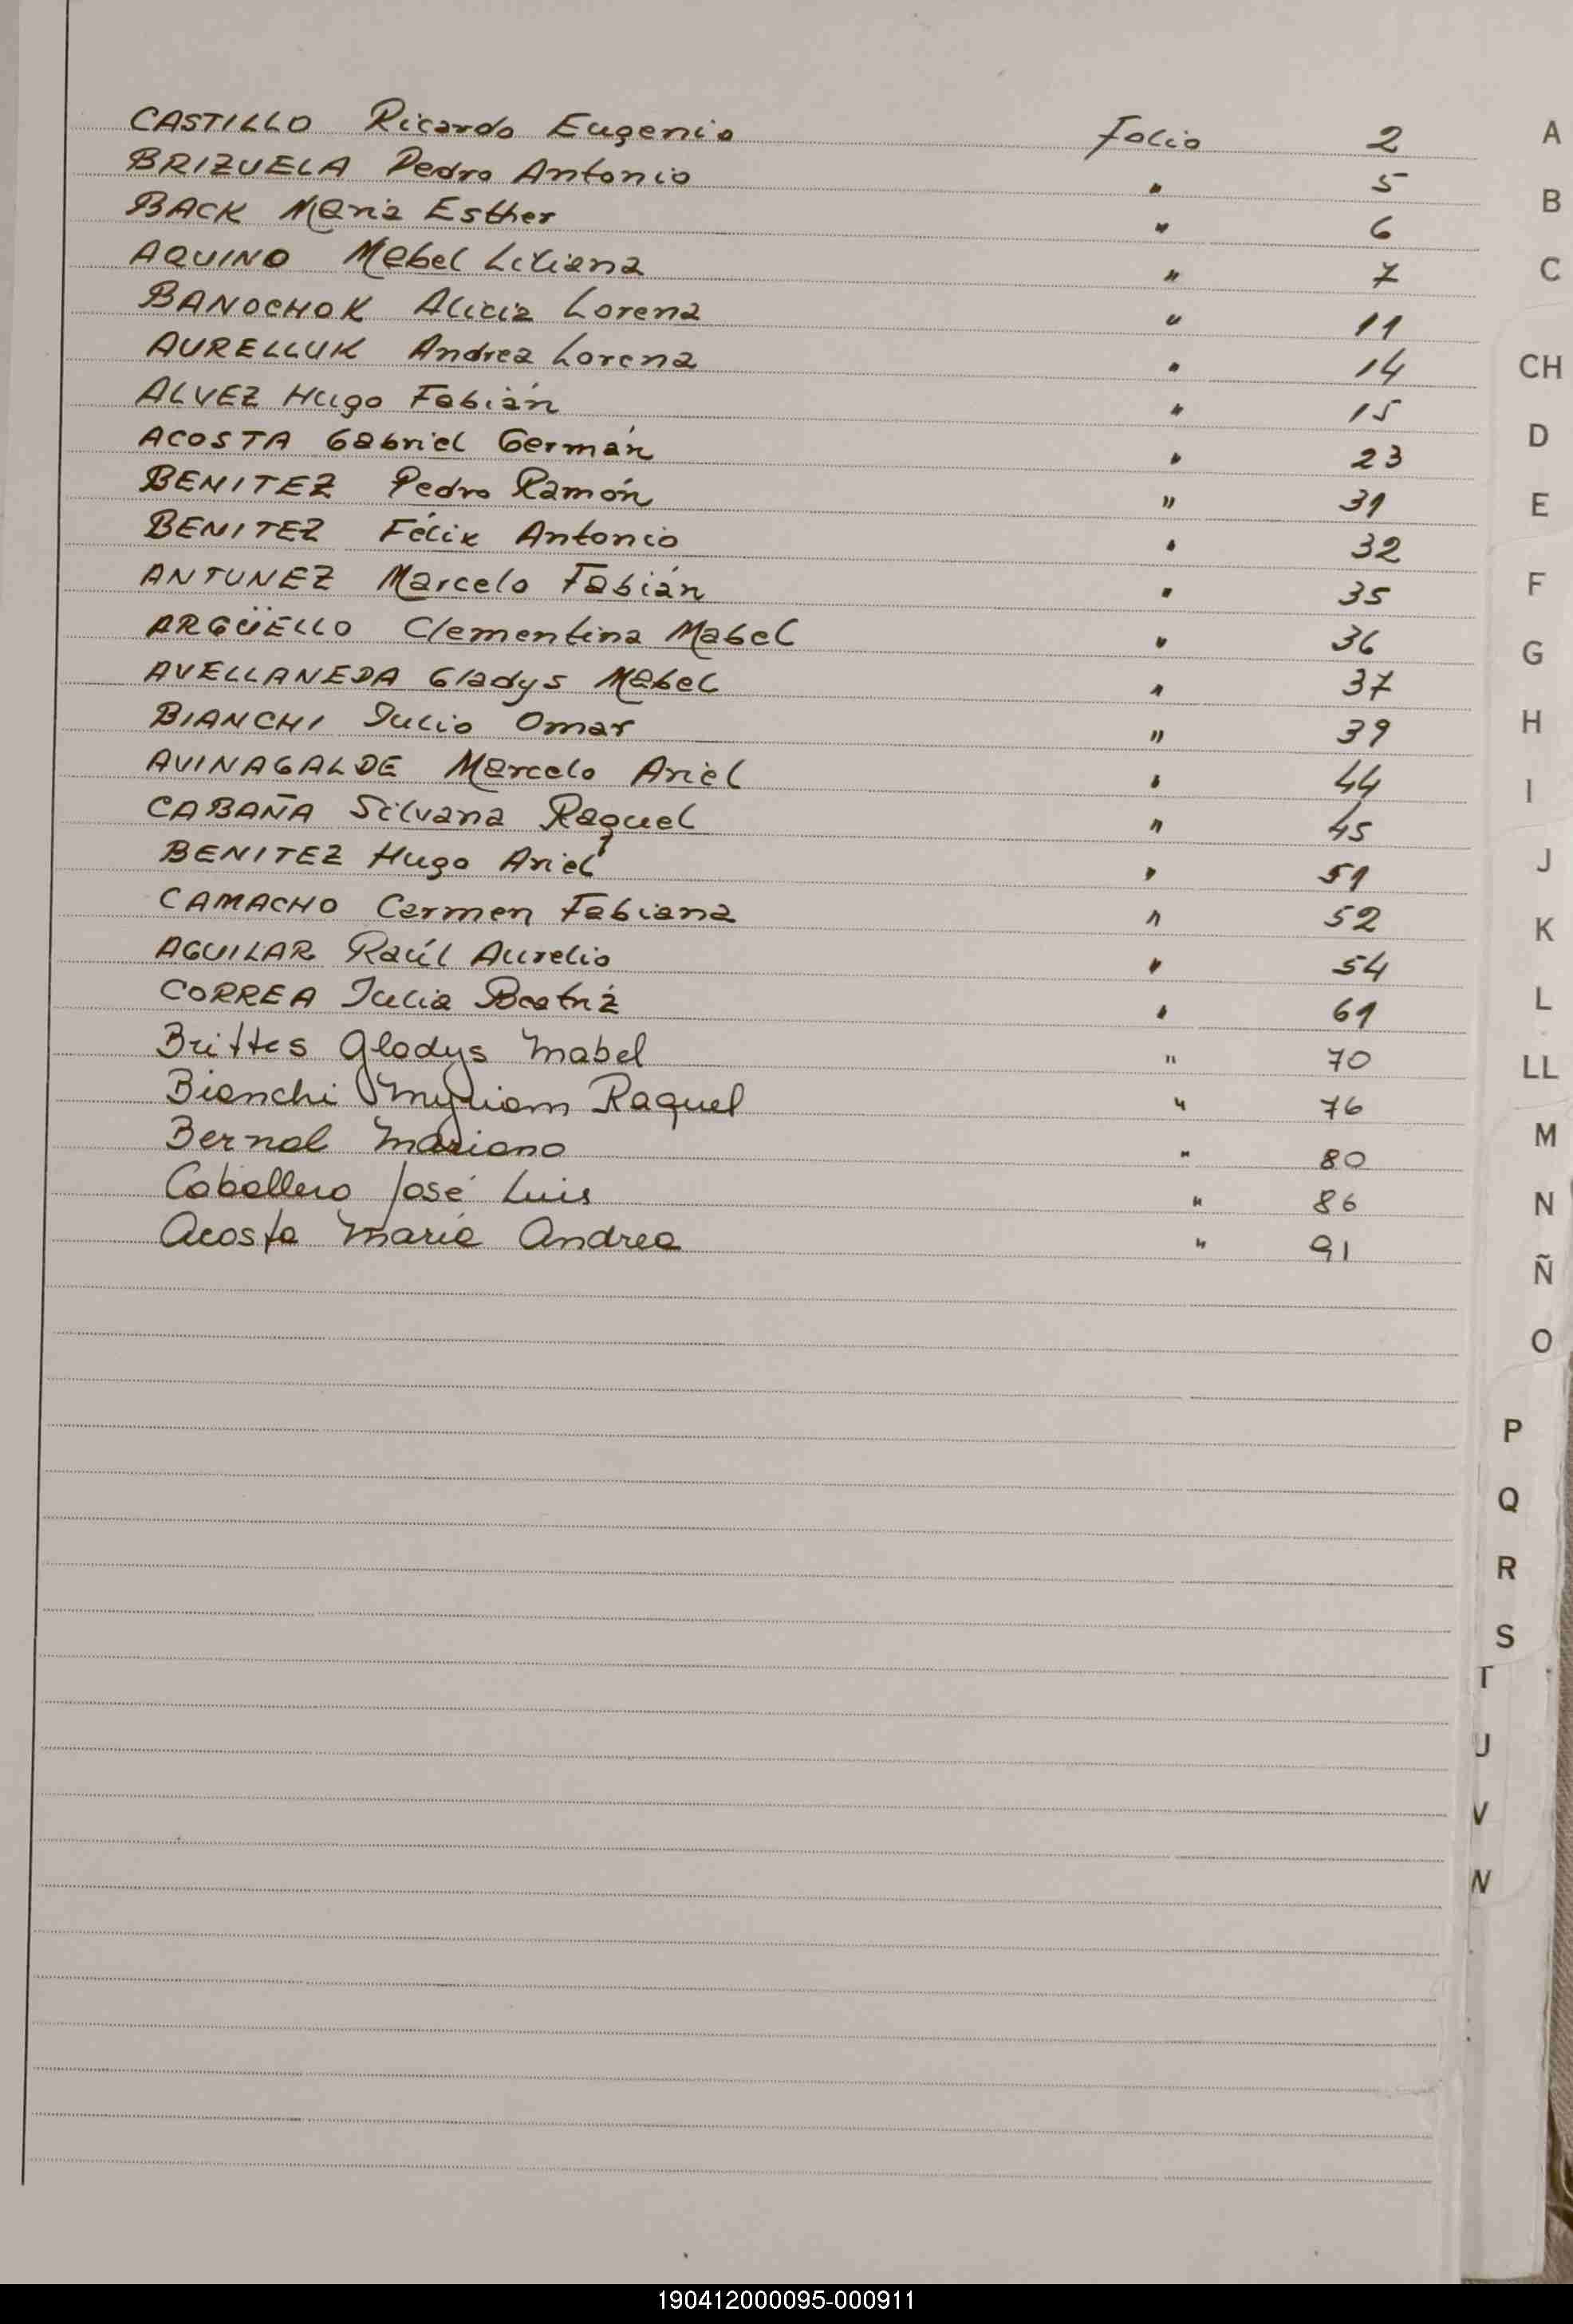 CASTILLO Ricardo Eugenio Folio 2
BRIZUELA Pedro Antonio " 5
BACK Maria Esther " 6
AQUINO Mabel Liliana " 7
BANOCHOK Alicia Lorena " 11
AURELLUK Andrea Lorena " 14
ALVEZ Hugo Fabián " 15
ACOSTA Gabriel Germán " 23
BENITEZ Pedro Ramón " 31
BENITEZ Félix Antonio " 32
ANTUNEZ Marcelo Fabián " 35
ARGÜELLO Clementina Mabel " 36
AVELLANEDA Gladys Mabel " 37
BIANCHI Julio Omar " 39
AVINAGALDE Marcelo Ariel " 44
CABAÑA Silvana Raquel " 45
BENITEZ Hugo Ariel " 51
CAMACHO Carmen Fabiana " 52
AGUILAR Raúl Aurelio " 54
CORREA Julia Beatriz " 61
Brittes Gladys Mabel " 70
Bianchi Myriam Raquel " 76
Bernal Mariano " 80
Caballero José Luis " 86
Acosta María Andrea " 91
A
B
C
CH
D
E
F
G
H
I
J
K
L
LL
M
N
Ñ
O
P
Q
R
S
T
U
V
W
190412000095-000911